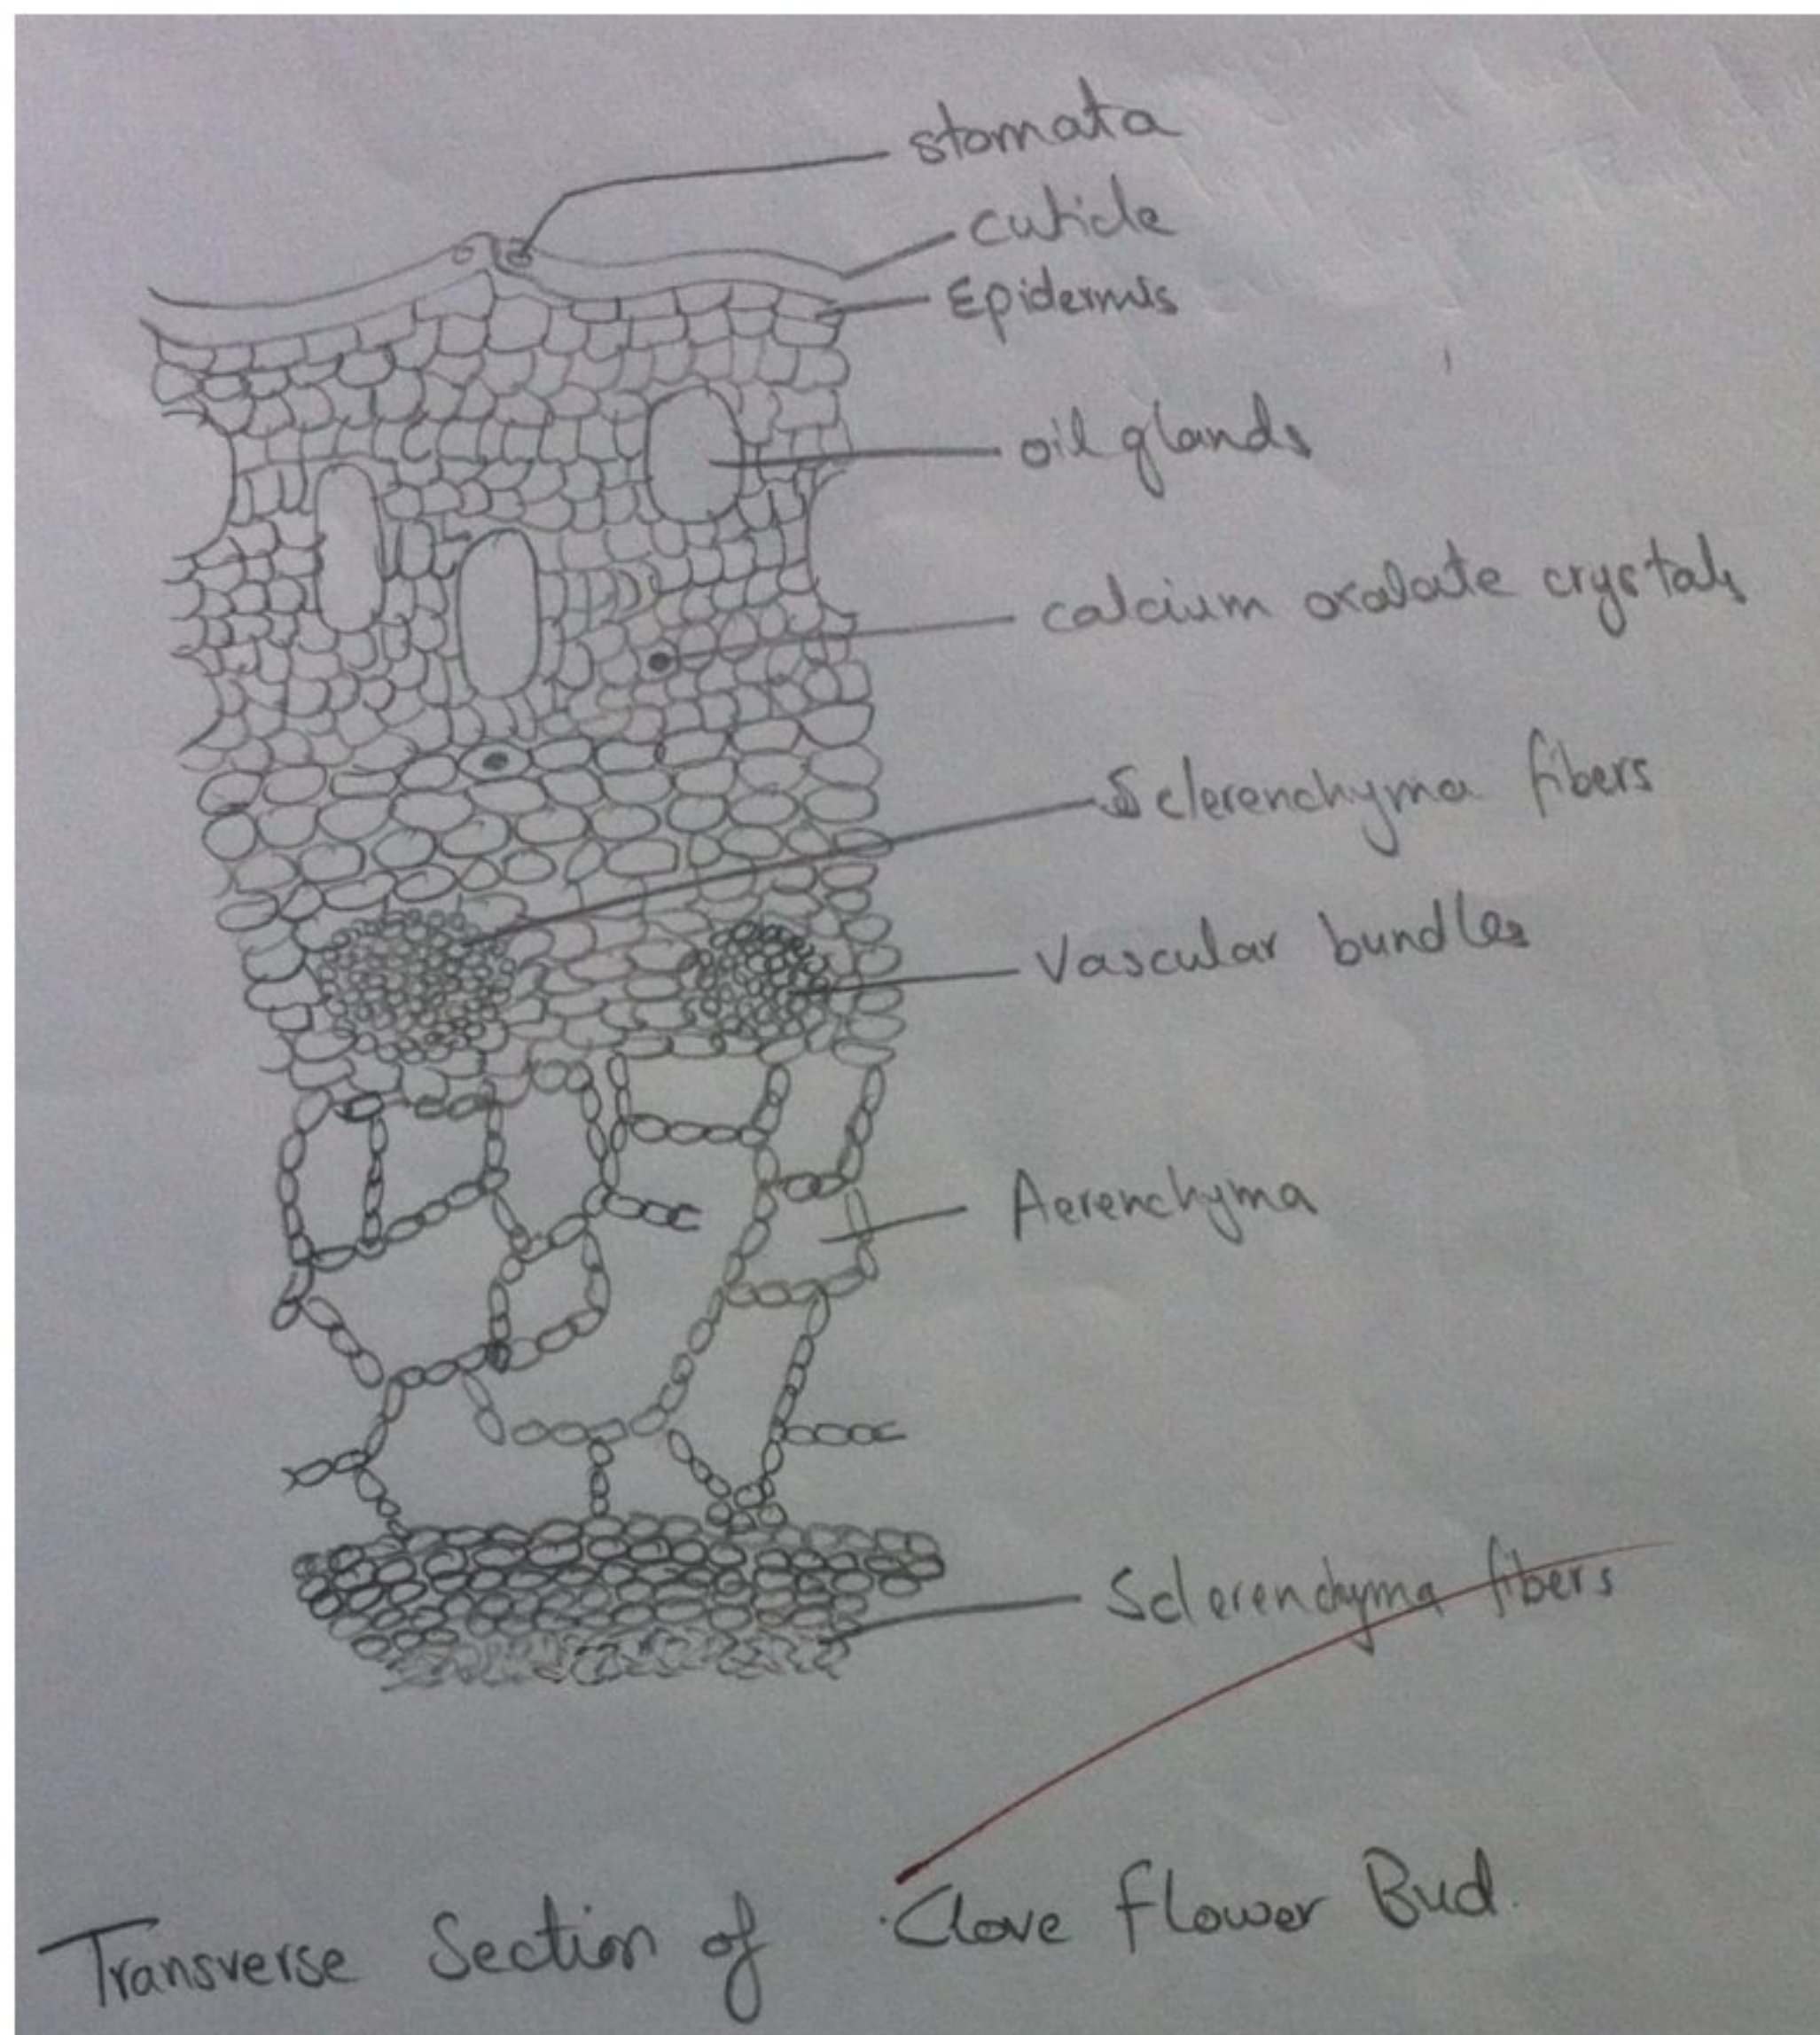 stomata
cuticle
Epidermis
oil glands
calcium oxalate crystals
Sclerenchyma fibers
Vascular bundles
Aerenchyma
Sclerenchyma fibers
Transverse Section of Clove Flower Bud.